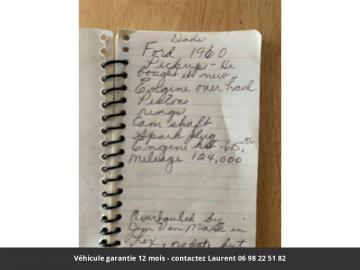 Dads
Ford 1960
Pickup - He
bought it new
Engine over haul
Pistons
rings
Cam shaft
Spark plug
Engine kit 615.
Mileage 124,000
Overhauled by
Jim Van Mark in
Lex, no date but
Véhicule garantie 12 mois - contactez Laurent 06 98 22 51 82